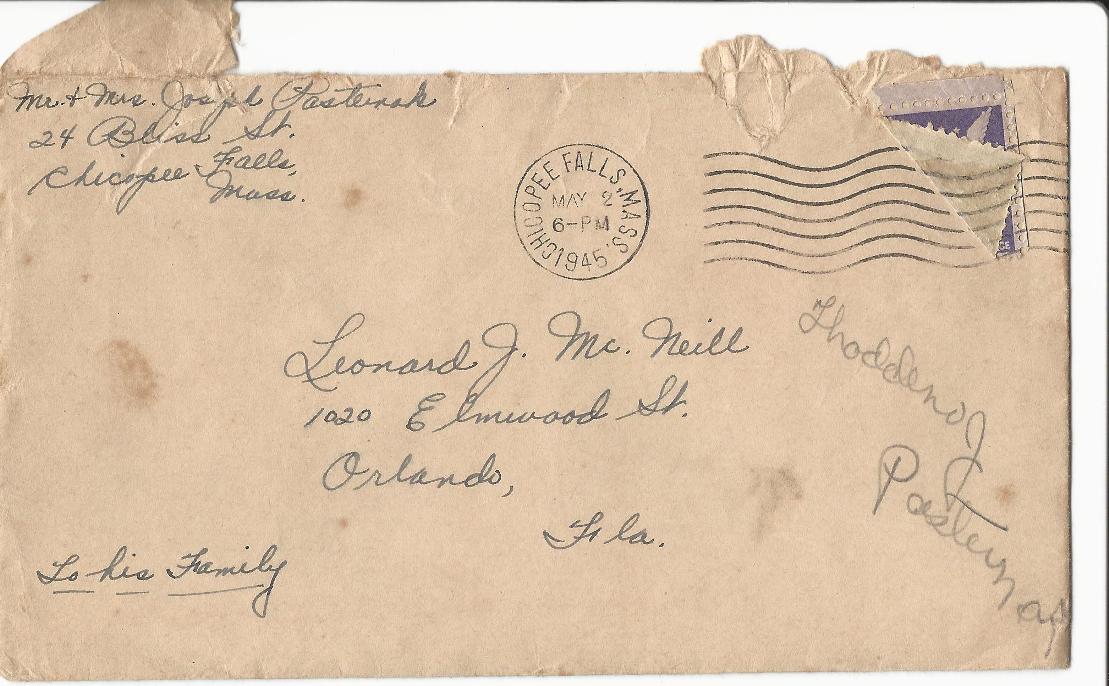 Mr. & Mrs. Joseph Pasternak
24 Bliss St.
Chicopee Falls,
Mass.
CHICOPEE FALLS, MASS.
MAY 2
6-PM
1945
Leonard J. Mc. Neill
1020 Elmwood St.
Orlando,
Fla.
To his Family
Thoddeno J
Pasternak